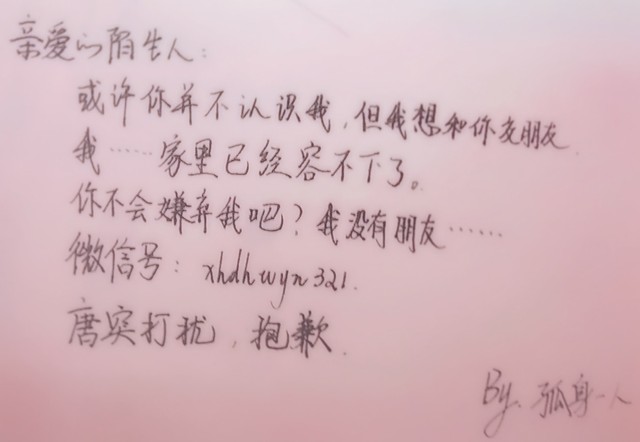 亲爱的陌生人：
或许你并不认识我，但我想和你交朋友
我……家里已经容不下了。
你不会嫌弃我吧？我没有朋友……
微信号：xhdhwyn321.
唐突打扰，抱歉.
By. 孤身一人